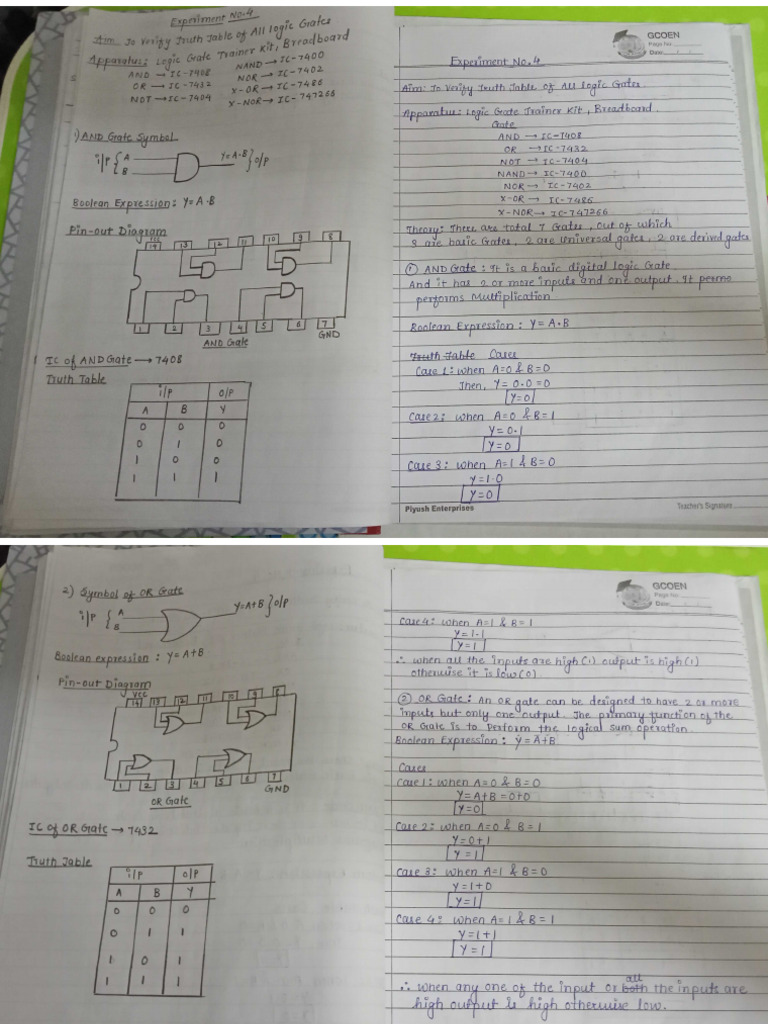 Experiment No.4
Aim: To Verify Truth Table of All logic Grates
Apparatus: Logic Grate Trainer Kit, Breadboard
AND → IC-7408
NAND → IC-7400
OR → IC-7432
NOR → IC-7402
NOT → IC-7404
X-OR → IC-7486
X-NOR → IC-747266
1) AND Gate Symbol
i/p { A B
Y=A·B } O/P
Boolean Expression: Y=A·B
Pin-out Diagram
VCC
14 13 12 11 10 9 8
1 2 3 4 5 6 7
GND
AND Gate
IC of AND Gate → 7408
Truth Table
i/p O/P
A B Y
0 0 0
0 1 0
1 0 0
1 1 1
GCOEN
Page No.
Date
Experiment No. 4
Aim: To Verify Truth Table of All Logic Gates.
Apparatus: Logic Gate Trainer Kit, Breadboard.
Gate
AND → IC-7408
OR → IC-7432
NOT → IC-7404
NAND → IC-7400
NOR → IC-7402
X-OR → IC-7486
X-NOR → IC-747266
Theory: There are total 7 Gates, out of which
3 are basic Gates, 2 are universal gates, 2 are derived gates
① AND Gate: It is a basic digital logic Gate.
And it has 2 or more inputs and one output. It
performs Multiplication
Boolean Expression: Y=A·B
Truth Table Cases
Case 1: when A=0 & B=0
Then, Y=0·0=0
Y=0
Case2: when A=0 & B=1
Y=0·1
Y=0
Case 3: when A=1 & B=0
Y=1·0
Y=0
Piyush Enterprises
Teacher's Signature
2) Symbol of OR Gate
i/p { A B
Y=A+B } O/P
Boolean expression: Y=A+B
Pin-out Diagram
VCC
14 13 12 11 10 9 8
1 2 3 4 5 6 7
GND
OR Gate
IC of OR Gate → 7432
Truth Table
i/p O/P
A B Y
0 0 0
0 1 1
1 0 1
1 1 1
GCOEN
Page No.
Date
Case4: when A=1 & B=1
Y=1·1
Y=1
∴ when all the inputs are high(1) output is high(1)
otherwise it is low(0)
② OR Gate: An OR gate can be designed to have 2 or more
inputs but only one output. The primary function of the
OR Gate is to Perform the logical sum operation.
Boolean Expression: Y=A+B
Cases
Case 1: when A=0 & B=0
Y=A+B=0+0
Y=0
Case 2: when A=0 & B=1
Y=0+1
Y=1
Case 3: when A=1 & B=0
Y=1+0
Y=1
Case 4: when A=1 & B=1
Y=1+1
Y=1
∴ when any one of the input or both all the inputs are
high output is high otherwise low.